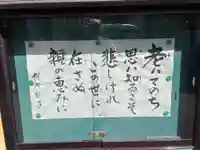 老いてのち
思い知るこそ
悲しけれ
この世に
在さぬ
親の恵みに